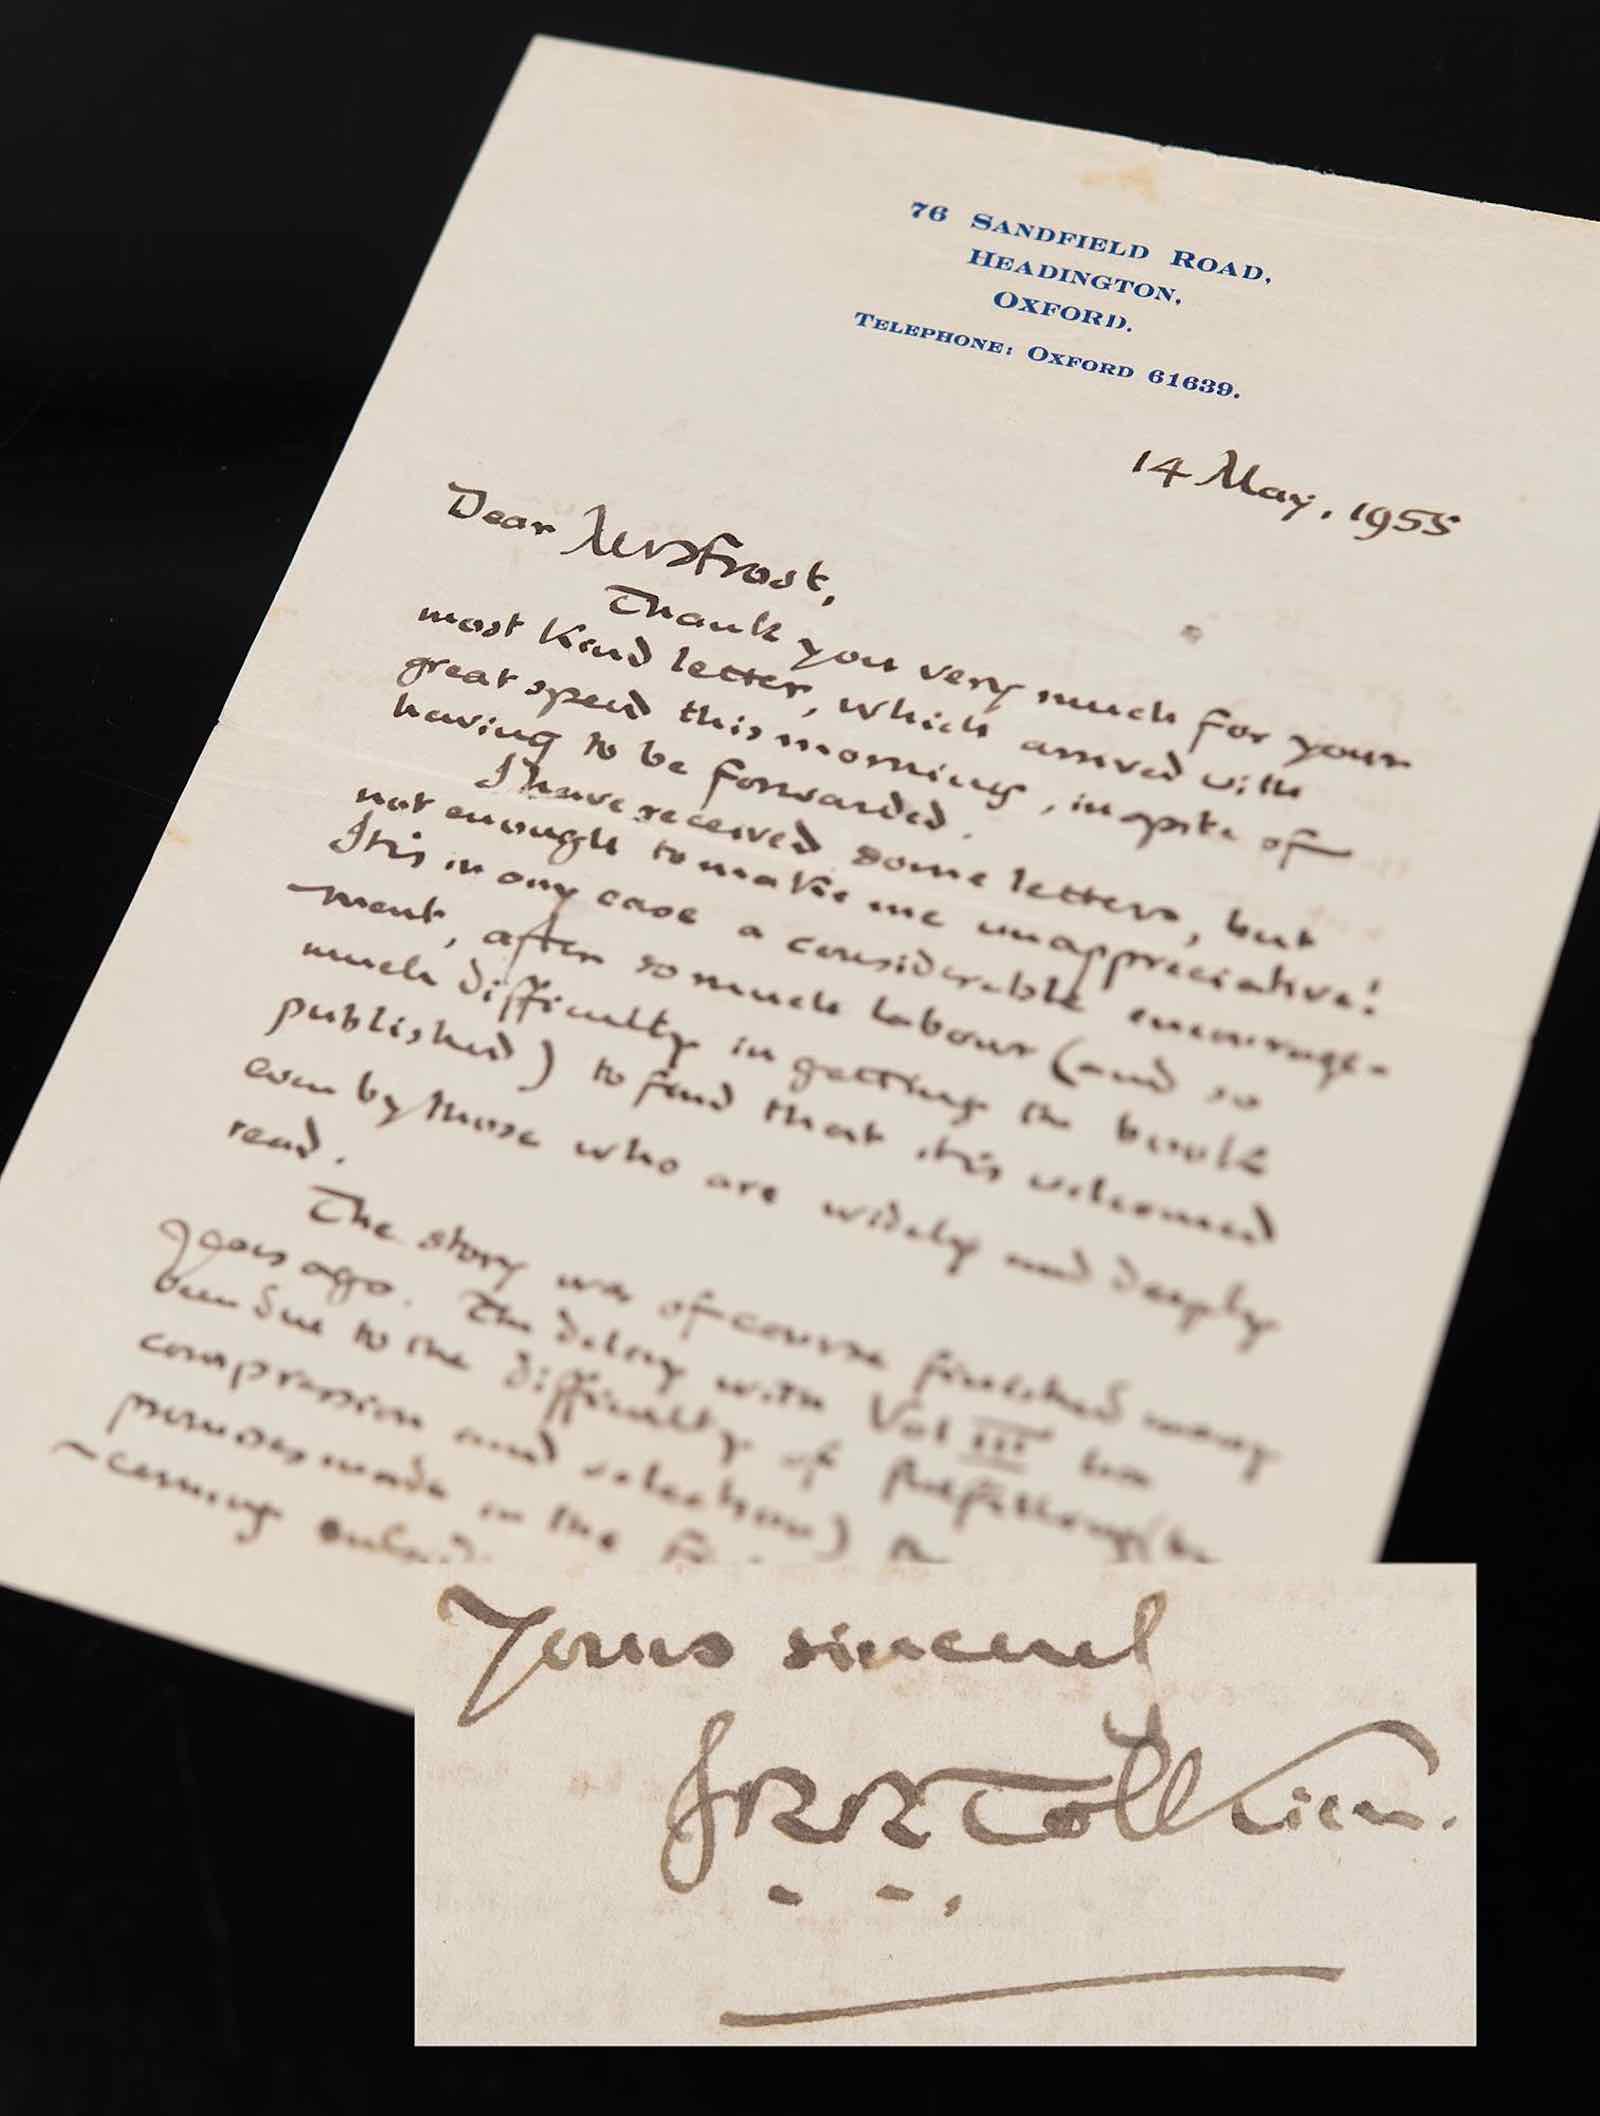 76 SANDFIELD ROAD,
HEADINGTON,
OXFORD.
TELEPHONE: OXFORD 61639.
14 May, 1955
Dear Mrs Frost,
Thank you very much for your
most kind letter, which arrived with
great speed this morning, in spite of
having to be forwarded.
I have received some letters, but
not enough to make me unappreciative!
It is in any case a considerable encourage-
ment, after so much labour (and so
much difficulty in getting the book
published) to find that it is welcomed
even by those who are widely and deeply
read.
The story was of course finished many
years ago. The delay with Vol III has
been due to the difficulty of fulfilling (by
compression and selection) the
promises made in the
-cerning
Yours sincerel
JRRTolkien.